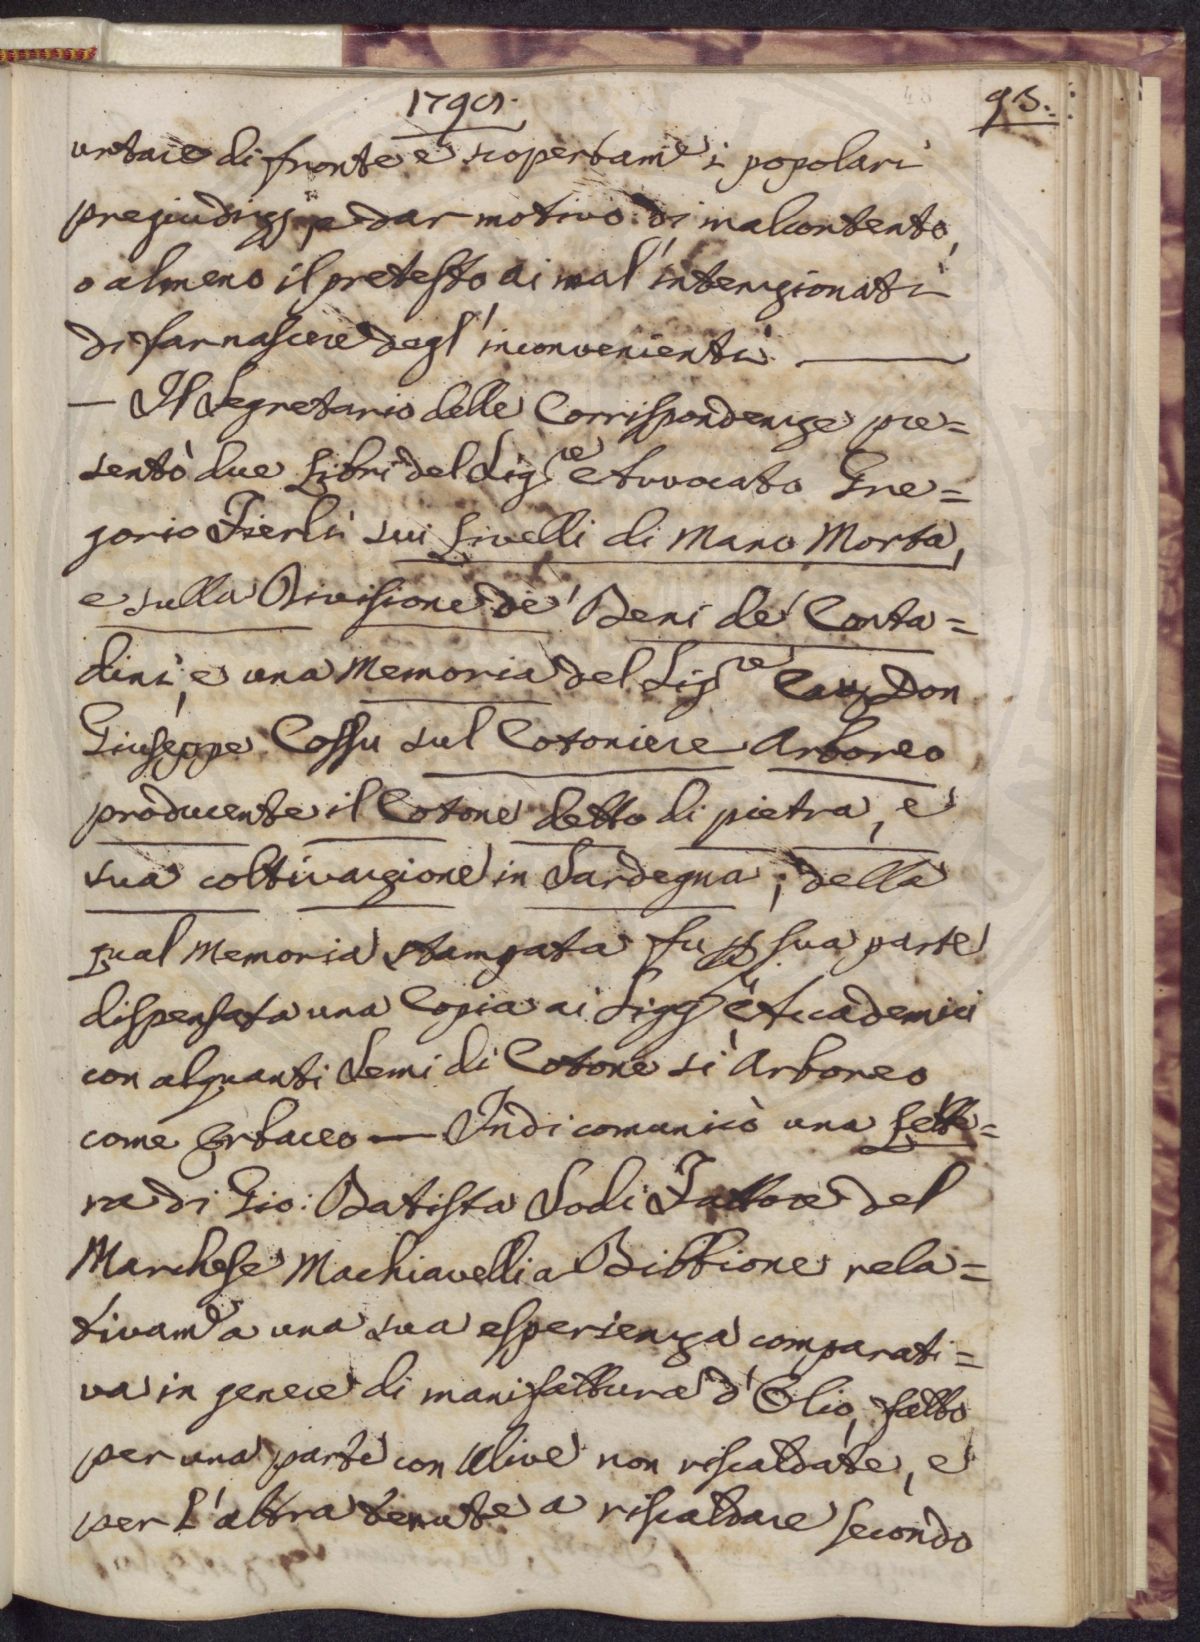 1790.
93.
urtare di fronte e scopertam.e i popolari
pregiudizj, e dar motivo di malcontento,
o almeno il pretesto ai mal'intenzionati
di far nascere degl'inconvenienti —
— Il Segretario delle Corrispondenze pre=
sentò due Libri del Sig.re Avvocato Gre=
gorio Fierli sui Livelli di Mano Morta,
e sulla Divisione de' Beni de' Conta=
dini, e una Memoria del Sig.re Cav. Don
Giuseppe Cossu sul Cotoniere Arboreo
producente il Cotone detto di pietra, e
sua coltivazione in Sardegna; della
qual Memoria stampata fu p sua parte
dispensata una Copia ai Sigg.i Accademici
con alquanti Semi di Cotone sì Arboreo
come Erbaceo — Indi comunicò una Lette=
ra di Gio: Batista Sodi Fattore del
Marchese Machiavelli a Bibbione rela=
tivam.e a una sua esperienza comparati=
va in genere di manifattura d'Olio, fatto
per una parte con Ulive non riscaldate, e
per l'altra tenute a riscaldare secondo